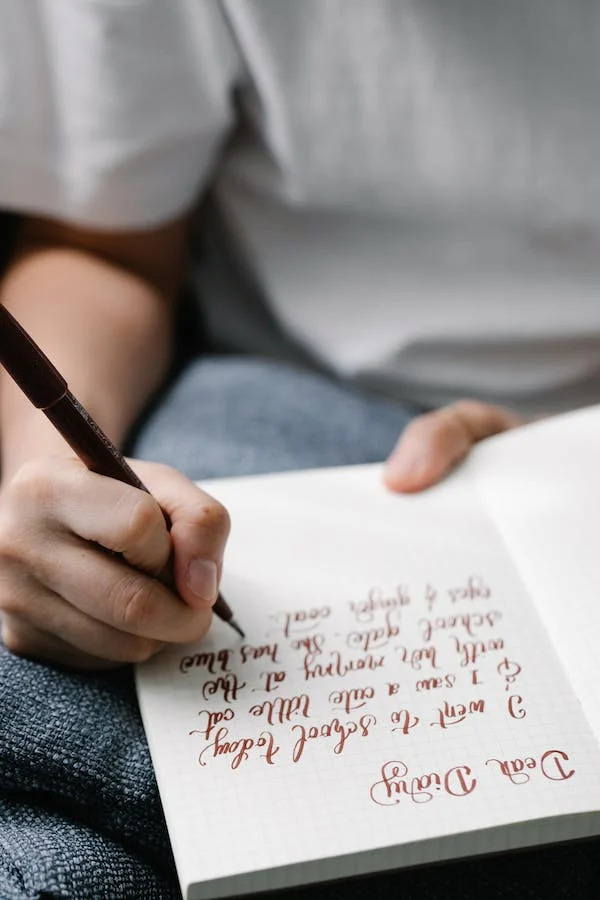 Dear Diary
I went to school today
& I saw a cute little cat
with her mommy at the
school gate. She has blue
eyes & ginger coat.